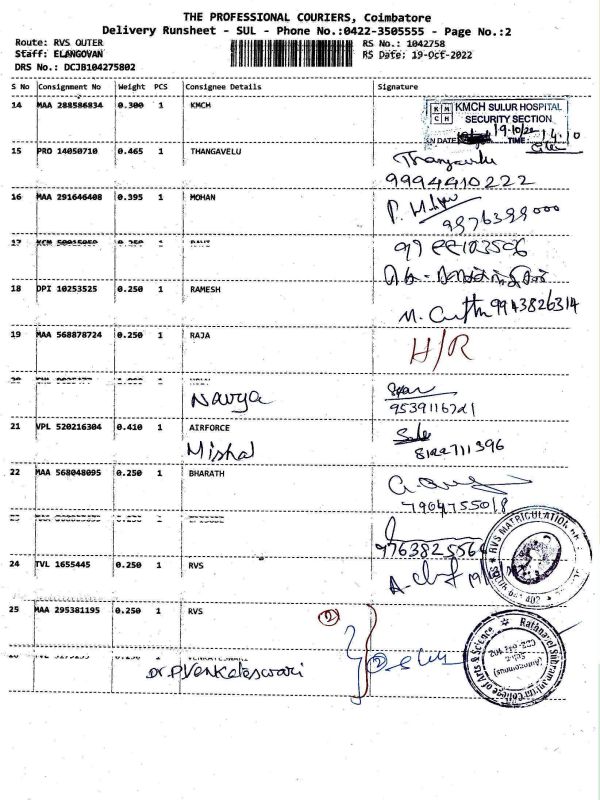 THE PROFESSIONAL COURIERS, Coimbatore
Delivery Runsheet - SUL - Phone No.:0422-3505555 - Page No.:2
Route: RVS OUTER
Staff: ELANGOVAN
DRS No.: DCJB104275802
RS No.: 1042758
RS Date: 19-Oct-2022
S No Consignment No Weight PCS Consignee Details Signature
14 MAA 288586834 0.300 1 KMCH
KMCH SULUR HOSPITAL
SECURITY SECTION
TIME
15 PRO 14050710 0.465 1 THANGAVELU
Thangavelu
9994410222
16 MAA 291646408 0.395 1 MOHAN
9976399000
17
18 DPI 10253525 0.250 1 RAMESH
9943826314
19 MAA 568878724 0.250 1 RAJA
H/R
Navya
9539116721
21 VPL 520216304 0.410 1 AIRFORCE
Mishal
8122711396
22 MAA 568048095 0.250 1 BHARATH
7904755018
24 TVL 1655445 0.250 1 RVS
RVS MATRICULATION
25 MAA 295381195 0.250 1 RVS
2
Dr.P.Venkateswari
College of Arts & Science
(Autonomous)